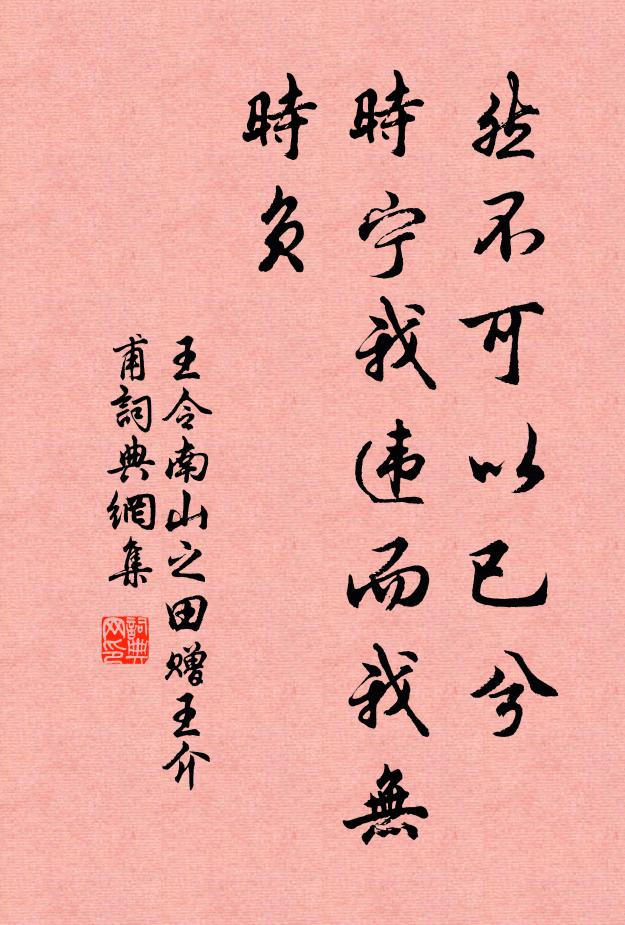 然不可以已兮
時宁我违而我無
時负
王令南山之田赠王介
甫詞典網集
詞典
网印